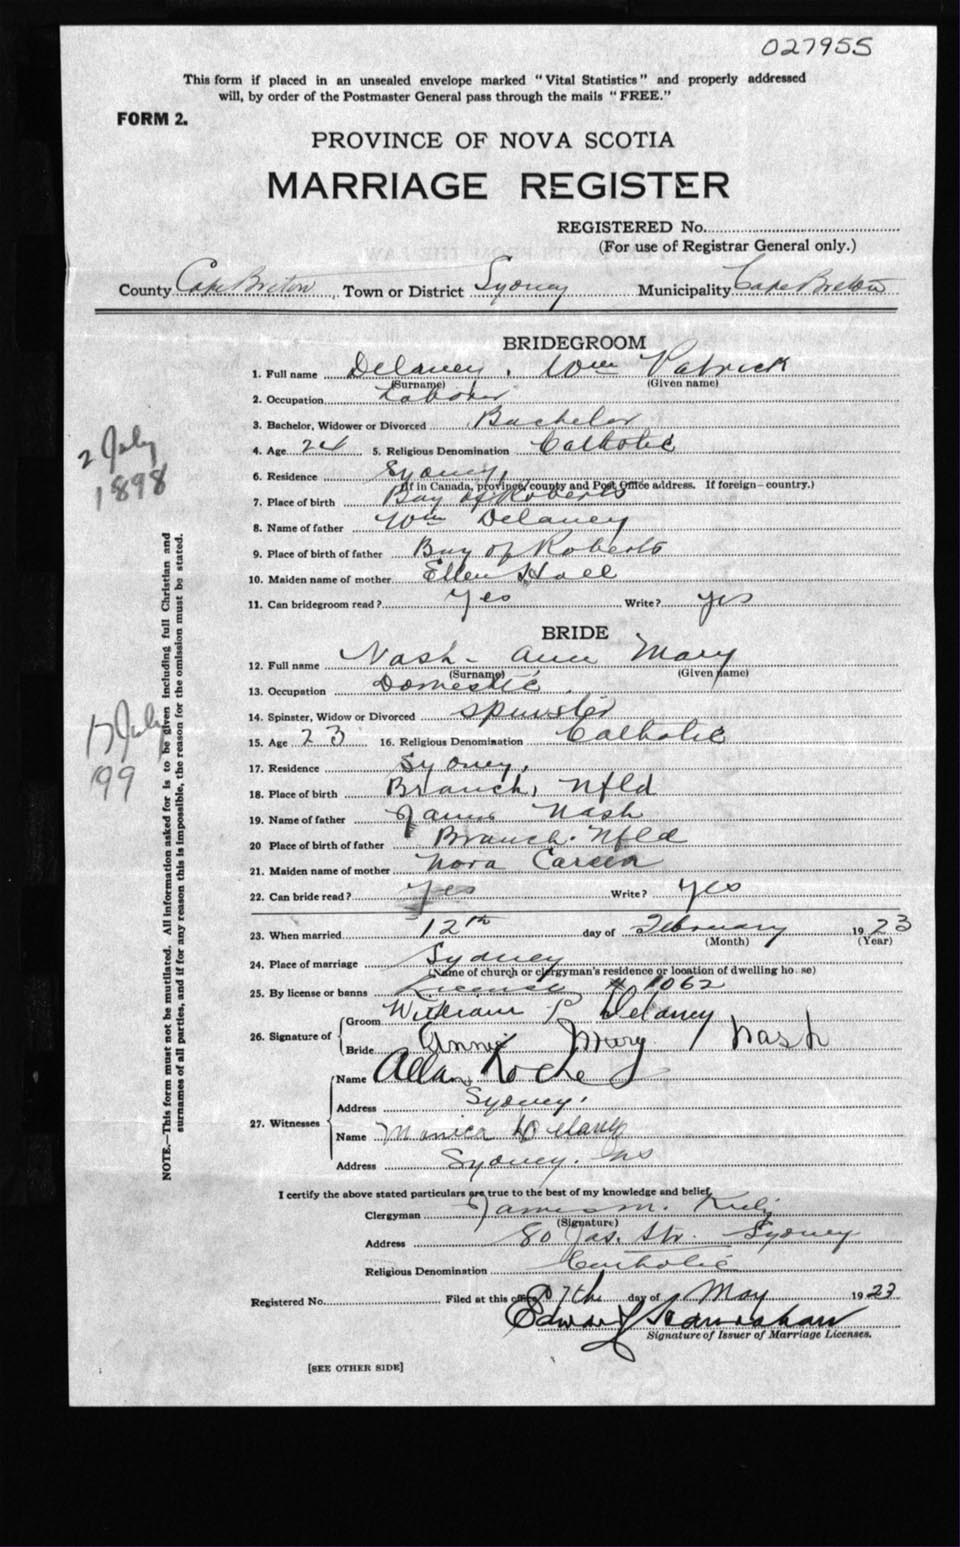 027955
This form if placed in an unsealed envelope marked "Vital Statistics" and properly addressed
will, by order of the Postmaster General pass through the mails "FREE."
FORM 2.
PROVINCE OF NOVA SCOTIA
MARRIAGE REGISTER
REGISTERED No.
(For use of Registrar General only.)
County Cape Breton, Town or District Sydney Municipality Cape Breton
BRIDEGROOM
1. Full name Delaney, Wm Patrick
(Surname) (Given name)
2. Occupation Laborer
3. Bachelor, Widower or Divorced Bachelor
4. Age 24 5. Religious Denomination Catholic
6. Residence Sydney,
(If in Canada, province, county and Post Office address. If foreign—country.)
7. Place of birth Bay of Roberts
8. Name of father Wm Delaney
9. Place of birth of father Bay of Roberts
10. Maiden name of mother Ellen Hall
11. Can bridegroom read? Yes Write? yes
2 July
1898
BRIDE
12. Full name Nash - Ann Mary
(Surname) (Given name)
13. Occupation Domestic
14. Spinster, Widow or Divorced Spinster
15. Age 23 16. Religious Denomination Catholic
17. Residence Sydney,
18. Place of birth Branch, Nfld
19. Name of father James Nash
20 Place of birth of father Branch. Nfld
21. Maiden name of mother Nora Careen
22. Can bride read? Yes Write? yes
July
'99
23. When married 12th day of February 1923
(Month) (Year)
24. Place of marriage Sydney
(Name of church or clergyman's residence or location of dwelling house)
25. By license or banns License # 1062
26. Signature of Groom William P Delaney
Bride Annie Mary Nash
27. Witnesses
Name Allan Roche
Address Sydney,
Name Monica Delaney
Address Sydney. NS
I certify the above stated particulars are true to the best of my knowledge and belief,
Clergyman James M. Kiely
(Signature)
Address 80 Jas. Str. Sydney
Religious Denomination Catholic
Registered No. Filed at this office 7th day of May 1923
Edward
Signature of Issuer of Marriage Licenses.
[SEE OTHER SIDE]
NOTE.—This form must not be mutilated. All information asked for is to be given including full Christian and
surnames of all parties, and if for any reason this is impossible, the reason for the omission must be stated.